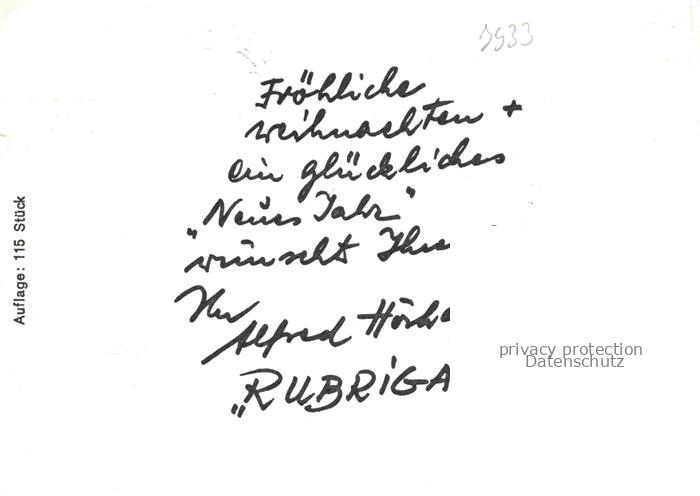 1933
Fröhliche
Weihnachten +
ein glückliches
"Neues Jahr"
wünscht Ihne
Ihr
Alfred Hörh
"RUBRIGA
Auflage: 115 Stück
privacy protection
Datenschutz